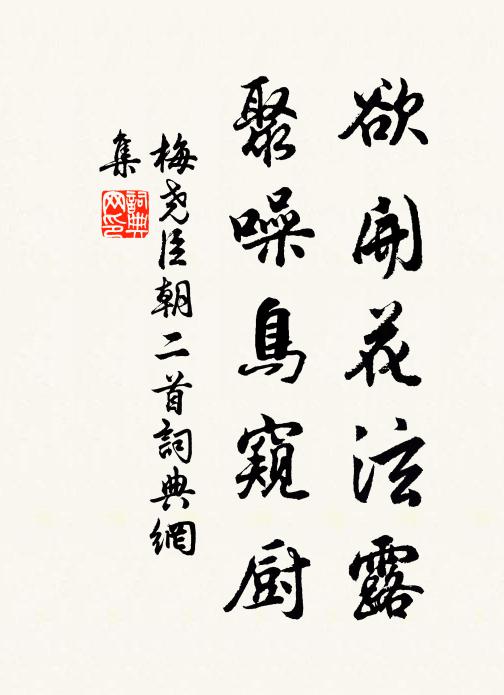 欲開花泫露
聚噪鳥窺厨
梅堯臣朝二首詞典網
集
詞典
网印